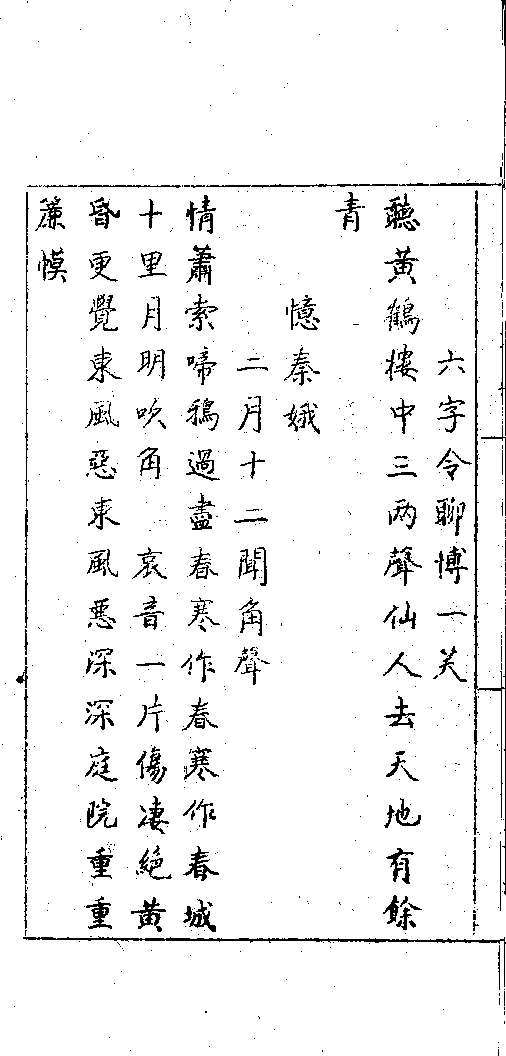 六字令聊博一笑
聽黃鶴樓中三兩聲仙人去天地有餘
青
憶秦娥
二月十二聞角聲
情蕭索啼鴉過盡春寒作春寒作春城
十里月明吹角 哀音一片傷凄絕黃
昏更覺東風惡東風悪深深庭院重重
簾幙